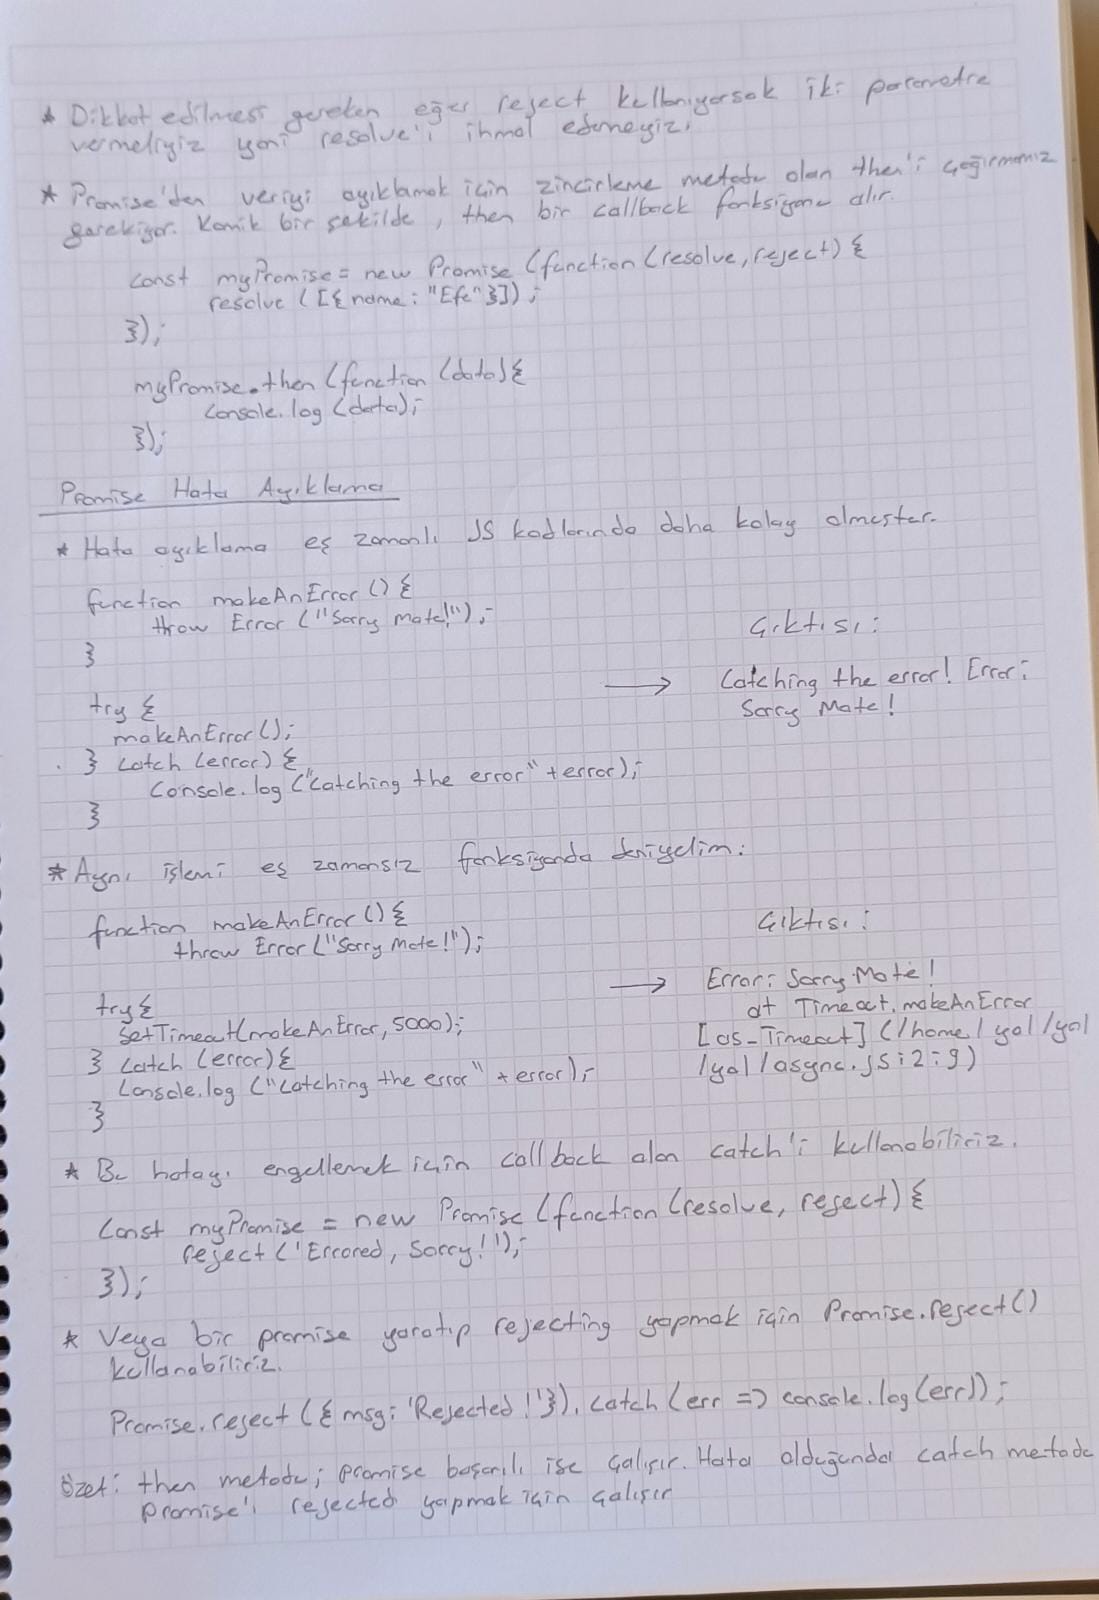 * Dikkat edilmesi gereken eğer reject kullanıyorsak iki parametre
vermeliyiz yani resolve'i ihmal edemeyiz.
* Promise'den veriyi ayıklamak için zincirleme metodu olan then'i çağırmamız
gerekiyor. Komik bir şekilde, then bir callback fonksiyonu alır.
const myPromise = new Promise (function (resolve, reject) {
resolve ([{ name: "Efe" }]);
});
myPromise.then (function (data) {
console.log (data);
});
Promise Hata Ayıklama
* Hata ayıklama eş zamanlı JS kodlarında daha kolay olmuştur.
function makeAnError () {
throw Error ("Sorry mate!");
}
Çıktısı:
try {
makeAnError ();
} catch (error) {
console.log ("Catching the error" + error);
}
→ Catching the error! Error:
Sorry Mate!
* Aynı işlemi eş zamansız fonksiyonda deniyelim:
function makeAnError () {
throw Error ("Sorry Mate!");
Çıktısı:
try {
setTimeout (makeAnError, 5000);
} catch (error) {
console.log ("Catching the error" + error);
}
→ Error: Sorry Mate!
at Timeout.makeAnError
[as_Timeout] (/home/yal/yal
/yal/async.js:2:9)
* Bu hatayı engellemek için callback alan catch'i kullanabiliriz.
Const myPromise = new Promise (function (resolve, reject) {
reject ('Errored, Sorry!');
});
* Veya bir promise yaratıp rejecting yapmak için Promise.reject()
kullanabiliriz.
Promise.reject ({ msg: 'Rejected!'}).catch (err => console.log (err));
Özet: then metodu; promise başarılı ise çalışır. Hata olduğunda catch metodu
promise'i rejected yapmak için çalışır